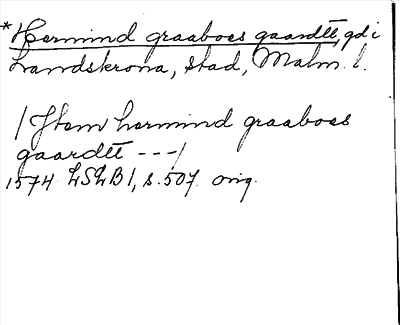 *Hermind graaboes gaardtt, gd i
Landskrona, stad, Malm. l.
/Jtem hermind graaboes
gaardtt ---/
1574 LSLB 1, s. 507. orig.